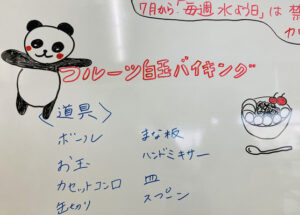 7月から「毎週水よう日」は禁
フルーツ白玉バイキング
〈道具〉
ボール
お玉
カセットコンロ
缶切り
まな板
ハンドミキサー
皿
スプーン